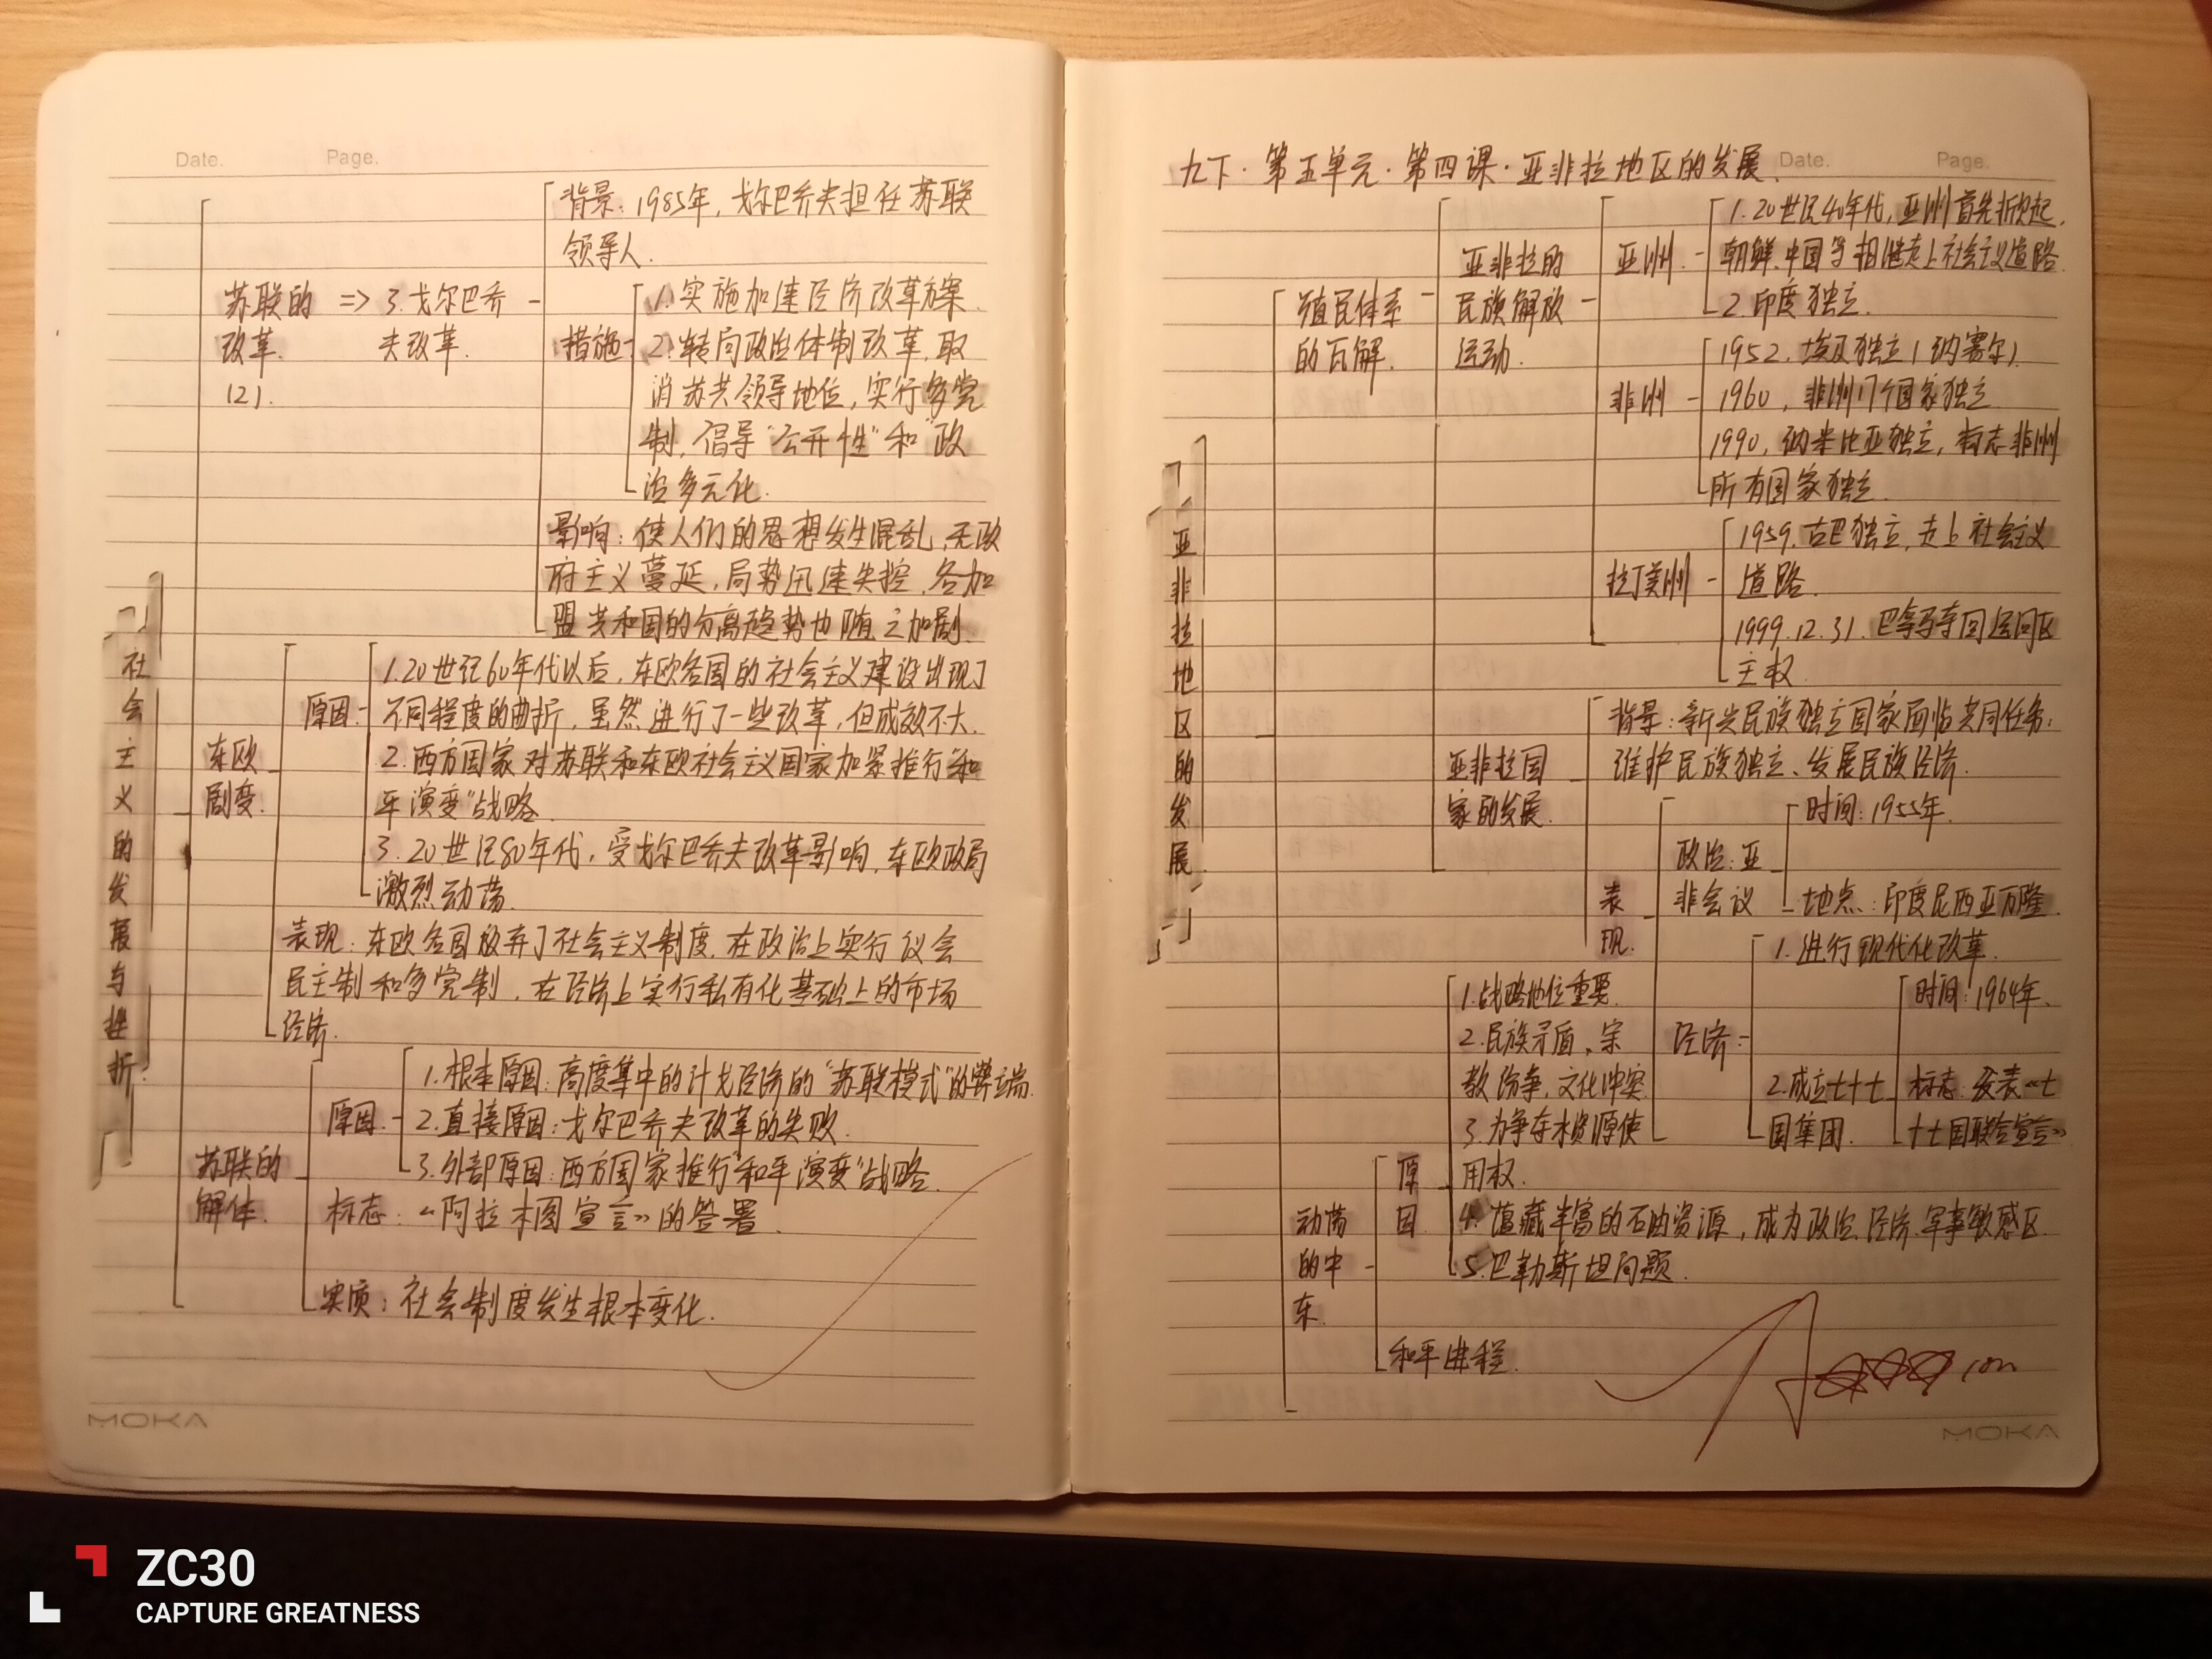 Date.
Page.
背景：1985年，戈尔巴乔夫担任苏联
领导人.
苏联的
改革.
(2).
=> 3.戈尔巴乔
夫改革.
措施
1.实施加速经济改革方案.
2.转向政治体制改革，取
消苏共领导地位，实行多党
制，倡导“公开性”和“政
治多元化.
影响：使人们的思想发生混乱，无政
府主义蔓延，局势迅速失控，各加
盟共和国的分离趋势也随之加剧.
社会主义的发展与挫折.
东欧
剧变.
原因.
1.20世纪60年代以后，东欧各国的社会主义建设出现了
不同程度的曲折，虽然进行了一些改革，但成效不大.
2.西方国家对苏联和东欧社会主义国家加紧推行“和
平演变”战略.
3.20世纪80年代，受戈尔巴乔夫改革影响，东欧政局
激烈动荡.
表现：东欧各国放弃了社会主义制度，在政治上实行议会
民主制和多党制，在经济上实行私有化基础上的市场
经济.
苏联的
解体.
原因.
1.根本原因：高度集中的计划经济的“苏联模式”的弊端.
2.直接原因：戈尔巴乔夫改革的失败.
3.外部原因：西方国家推行“和平演变”战略.
标志：《阿拉木图宣言》的签署.
实质：社会制度发生根本变化.
MOKA
九下·第五单元·第四课·亚非拉地区的发展.
Date.
Page.
亚非拉地区的发展.
殖民体系
的瓦解.
亚非拉的
民族解放
运动.
亚洲.
1.20世纪40年代，亚洲首先掀起，
朝鲜、中国等相继走上社会主义道路.
2.印度独立.
非洲
1952.埃及独立(纳赛尔)
1960，非洲17个国家独立
1990，纳米比亚独立，标志非洲
所有国家独立.
拉丁美洲
1959.古巴独立，走上社会主义
道路.
1999.12.31.巴拿马夺回运河区
主权.
亚非拉国
家的发展.
背景：新兴民族独立国家面临共同任务：
维护民族独立、发展民族经济.
表现.
政治：亚
非会议
时间：1955年.
地点：印度尼西亚万隆.
经济：
1.进行现代化改革.
2.成立七十七
国集团.
时间：1964年.
标志：发表《七
十七国联合宣言》
动荡
的中
东.
原因
1.战略地位重要.
2.民族矛盾、宗
教纷争、文化冲突
3.为争夺水资源使
用权.
4.蕴藏丰富的石油资源，成为政治、经济、军事敏感区.
5.巴勒斯坦问题.
和平进程.
MOKA
ZC30
CAPTURE GREATNESS